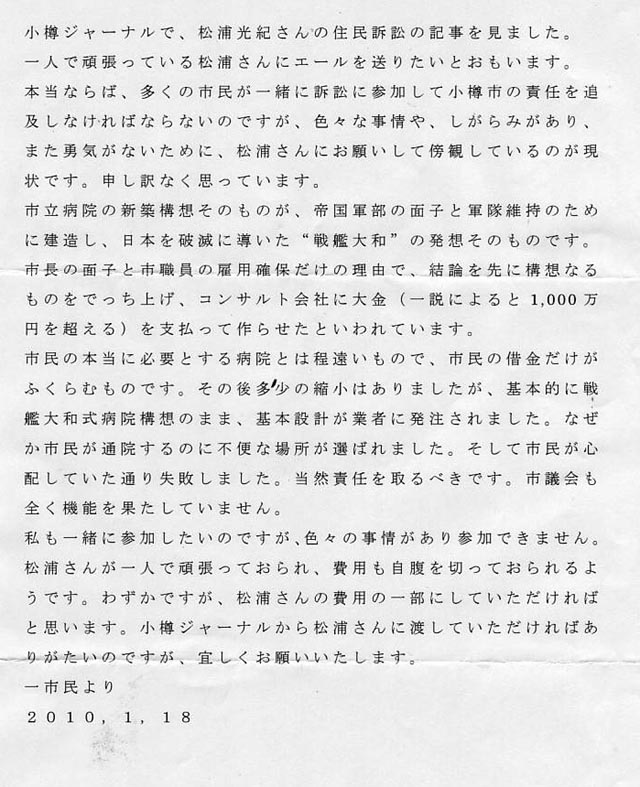 小樽ジャーナルで、松浦光紀さんの住民訴訟の記事を見ました。
一人で頑張っている松浦さんにエールを送りたいとおもいます。
本当ならば、多くの市民が一緒に訴訟に参加して小樽市の責任を追
及しなければならないのですが、色々な事情や、しがらみがあり、
また勇気がないために、松浦さんにお願いして傍観しているのが現
状です。申し訳なく思っています。
市立病院の新築構想そのものが、帝国軍部の面子と軍隊維持のため
に建造し、日本を破滅に導いた“戦艦大和”の発想そのものです。
市長の面子と市職員の雇用確保だけの理由で、結論を先に構想なる
ものをでっち上げ、コンサルト会社に大金（一説によると 1,000 万
円を超える）を支払って作らせたといわれています。
市民の本当に必要とする病院とは程遠いもので、市民の借金だけが
ふくらむものです。その後多少の縮小はありましたが、基本的に戦
艦大和式病院構想のまま、基本設計が業者に発注されました。なぜ
か市民が通院するのに不便な場所が選ばれました。そして市民が心
配していた通り失敗しました。当然責任を取るべきです。市議会も
全く機能を果たしていません。
私も一緒に参加したいのですが、色々の事情があり参加できません。
松浦さんが一人で頑張っておられ、費用も自腹を切っておられるよ
うです。わずかですが、松浦さんの費用の一部にしていただければ
と思います。小樽ジャーナルから松浦さんに渡していただければあ
りがたいのですが、宜しくお願いいたします。
一市民より
２０１０，１，１８